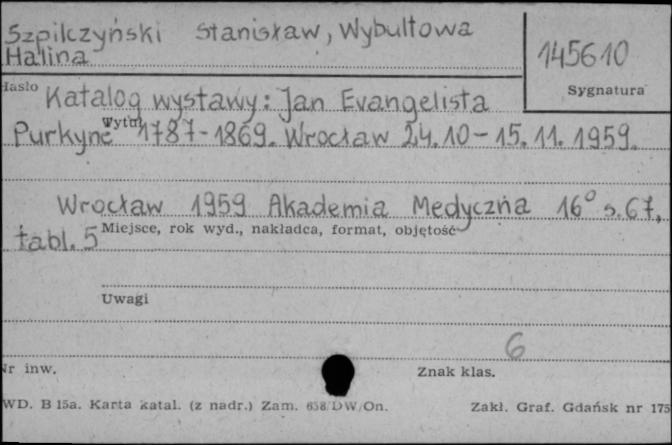 Szpilczyński Stanisław, Wybultowa
Halina
145610
Hasło
Sygnatura
Katalog wystawy: Jan Evangelista
Tytuł
Purkyne 1787-1869. Wrocław 24.10-15.11.1959.
Wrocław 1959 Akademia Medyczna 16° s. 67,
tabl. 5
Miejsce, rok wyd., nakładca, format, objętość
Uwagi
6
Nr inw.
Znak klas.
WD. B 15a. Karta katal. (z nadr.) Zam. 658/DW/On.
Zakł. Graf. Gdańsk nr 175